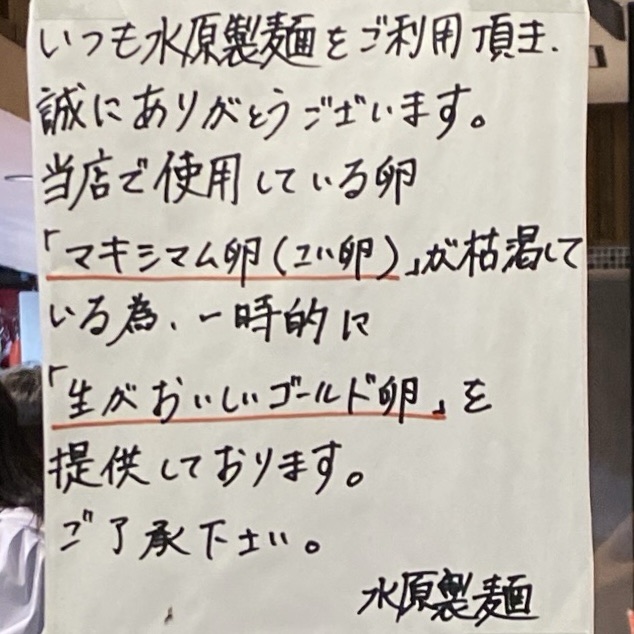 いつも水原製麺をご利用頂き、
誠にありがとうございます。
当店で使用している卵
「マキシマム卵(こい卵)」が枯渇して
いる為、一時的に
「生がおいしいゴールド卵」を
提供しております。
ご了承下さい。
水原製麺